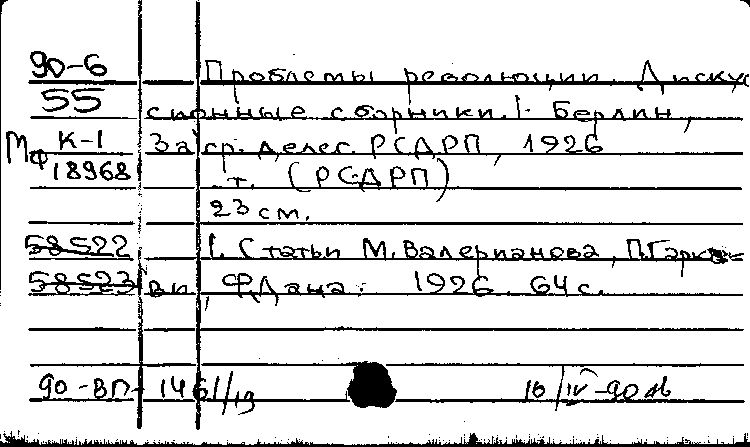 90-6 Проблемы революции. Диску
55 сионные сборники. 1- Берлин,
Мф К-1 Загр. делег. РСДРП, 1926
18968 .т. (РСДРП)
23 см.
58522 1. Статьи М. Валерианова, П. Гарк
58523 ви, Ф. Дана. 1926. 64 с.
90-ВП-1461/19 16/IV-90